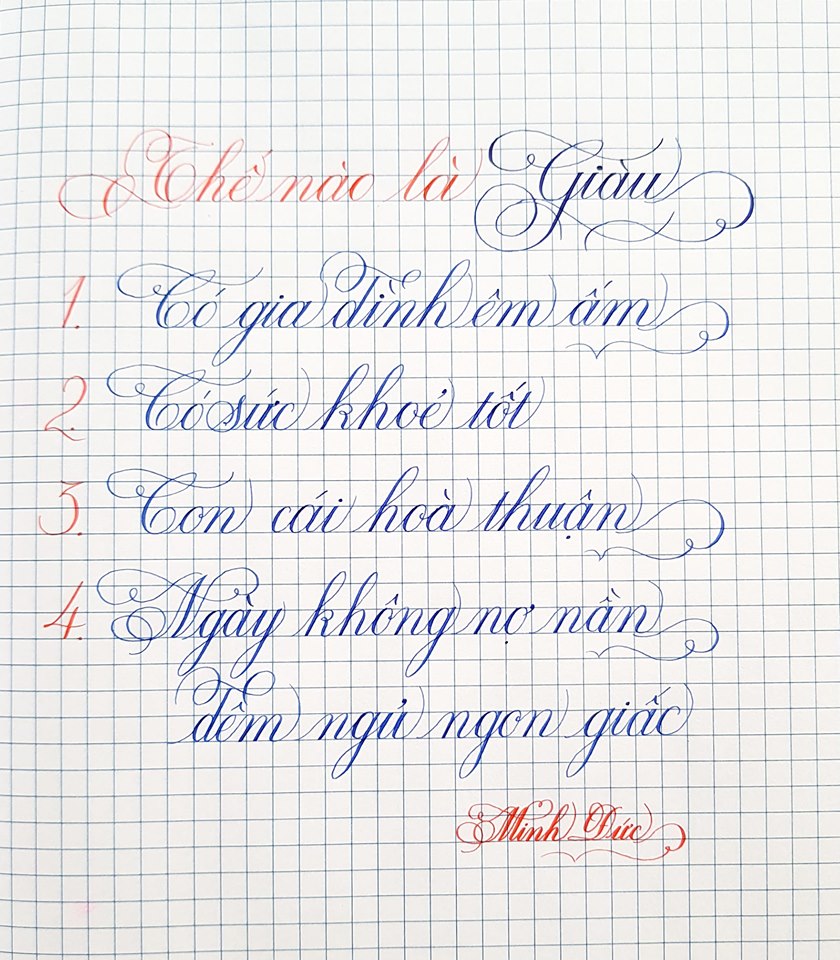 Thế nào là Giàu
1. Có gia đình êm ấm
2. Có sức khoẻ tốt
3. Con cái hoà thuận
4. Ngày không nợ nần
đêm ngủ ngon giấc
Minh Đức